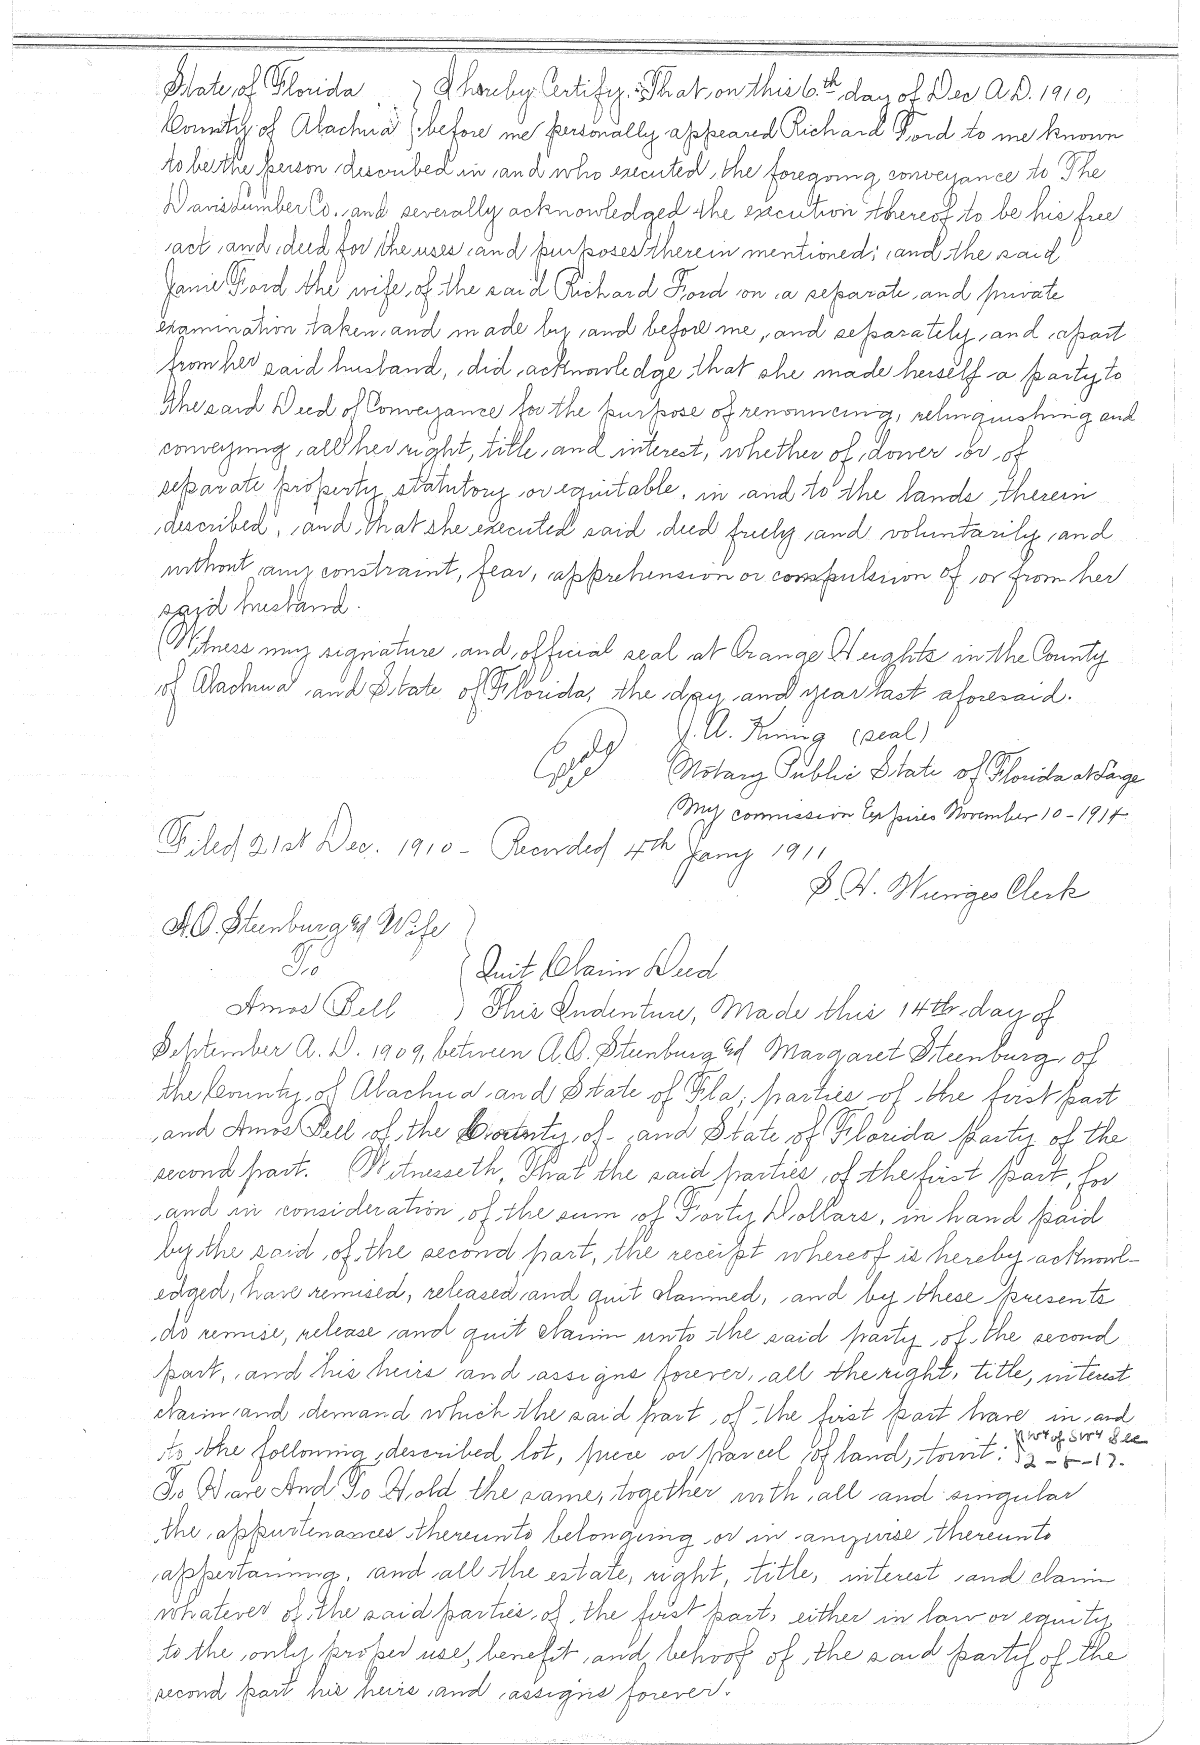 State of Florida } I hereby Certify: That on this 6th day of Dec A.D. 1910,
County of Alachua } before me personally appeared Richard Ford to me known
to be the person described in and who executed the foregoing conveyance to The
Davis Lumber Co. and severally acknowledged the execution thereof to be his free
act and deed for the uses and purposes therein mentioned; and the said
Janie Ford the wife of the said Richard Ford on a separate and private
examination taken and made by and before me, and separately and apart
from her said husband, did acknowledge that she made herself a party to
the said Deed of Conveyance for the purpose of renouncing, relinquishing and
conveying all her right, title and interest, whether of dower or of
separate property statutory or equitable, in and to the lands therein
described, and that she executed said deed freely and voluntarily and
without any constraint, fear, apprehension or compulsion of or from her
said husband.
Witness my signature and official seal at Orange Heights in the County
of Alachua and State of Florida, the day and year last aforesaid.
J. A. King (seal)
Notary Public State of Florida at Large
My commission Expires November 10-1914
Filed 21st Dec. 1910 - Recorded 4th Jany 1911
S. H. Wienges Clerk
A.O. Steenburg et Wife }
To } Quit Claim Deed
Amos Bell } This Indenture, Made this 14th day of
September A. D. 1909, between A.O. Steenburg et Margaret Steenburg of
the County of Alachua and State of Fla; parties of the first part
and Amos Bell of the County of - and State of Florida party of the
second part. Witnesseth, That the said parties of the first part, for
and in consideration of the sum of Forty Dollars, in hand paid
by the said of the second part, the receipt whereof is hereby acknowl-
edged, have remised, released and quit claimed, and by these presents
do remise, release and quit claim unto the said party of the second
part, and his heirs and assigns forever, all the right, title, interest
claim and demand which the said part of the first part have in and
to the following described lot, piece or parcel of land, towit: NW4 of SW4 Sec
12-8-17.
To Have And To Hold the same, together with all and singular
the appurtenances thereunto belonging or in anywise thereunto
appertaining, and all the estate, right, title, interest and claim
whatever of the said parties of the first part, either in law or equity
to the only proper use, benefit and behoof of the said party of the
second part his heirs and assigns forever.